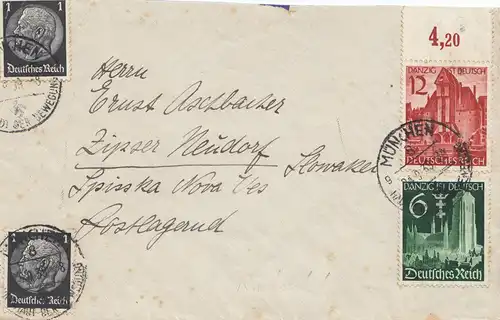 1
Deutsches Reich
4,20
DANZIG IST DEUTSCH
12
DEUTSCHES REICH
MÜNCHEN
Herrn
Ernst Aschbacher
Zipser Neudorf Slowakei
Spisska Nova Ves
Postlagernd
DANZIG IST DEUTSCH
6
Deutsches Reich
1
Deutsches Reich